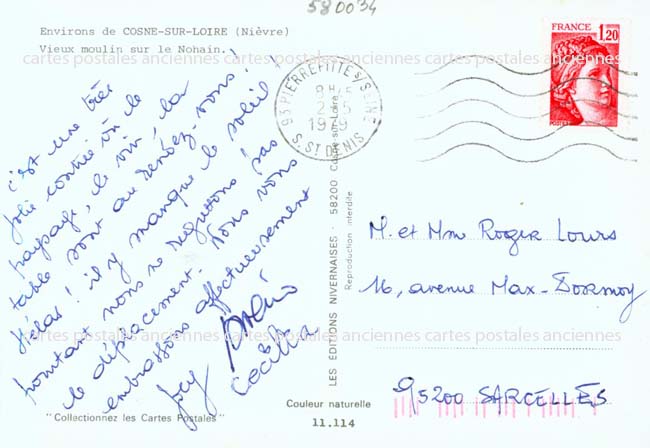 580034
Environs de COSNE-SUR-LOIRE (Nièvre)
Vieux moulin sur le Nohain.
cartes postales anciennes cartes postales anciennes cartes postales anciennes
c'est une très
jolie contrée où le
paysage, le vin, la
table sont au rendez-vous !
Hélas ! il y manque le soleil !
pourtant nous ne regrettons pas
le déplacement. Nous vous
embrassons affectueusement
Cécilia
"Collectionnez les Cartes Postales"
93 PIERREFITTE S/SEINE
1979
S. ST DENIS
LES EDITIONS NIVERNAISES - 58200 Cosne-sur-Loire
Reproduction interdite
Couleur naturelle
11.114
FRANCE
1,20
M. et Mme Roger Lours
16, avenue Max-Dormoy
cartes postales anciennes cartes postales anciennes cartes postales anciennes
95200 SARCELLES